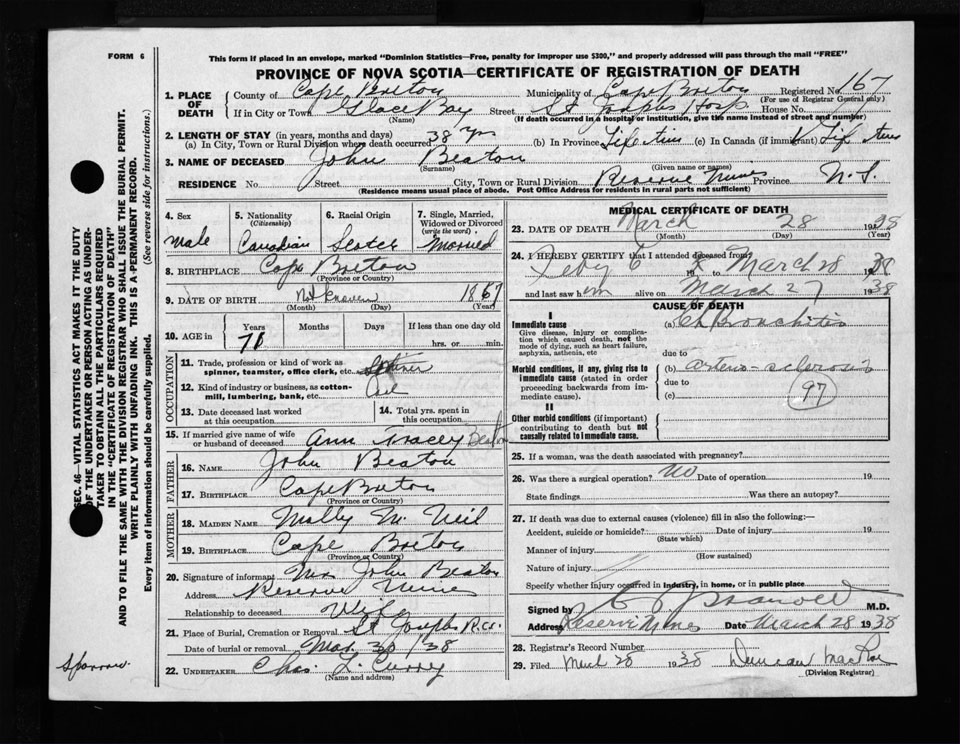 FORM 6
This form if placed in an envelope, marked "Dominion Statistics—Free, penalty for improper use $300," and properly addressed will pass through the mail "FREE"
PROVINCE OF NOVA SCOTIA—CERTIFICATE OF REGISTRATION OF DEATH
1. PLACE OF DEATH County of Cape Breton Municipality of Cape Breton Registered No. 167
(For use of Registrar General only)
If in City or Town Glace Bay Street St Josephs Hosp House No.
(Name) (If death occurred in a hospital or institution, give the name instead of street and number)
2. LENGTH OF STAY (in years, months and days)
(a) In City, Town or Rural Division where death occurred 38 yrs (b) In Province Life time (c) In Canada (if immigrant) Life time
3. NAME OF DECEASED John Beaton
(Surname) (Given name or names)
RESIDENCE No. Street City, Town or Rural Division Reserve Mines Province N.S.
(Residence means usual place of abode. Post Office Address for residents in rural parts not sufficient)
4. Sex
male
5. Nationality
(Citizenship)
Canadian
6. Racial Origin
Scotch
7. Single, Married, Widowed or Divorced
(write the word)
Married
8. BIRTHPLACE Cape Breton
(Province or Country)
9. DATE OF BIRTH Not Known 1867
(Month) (Day) (Year)
10. AGE in Years Months Days If less than one day old
71 hrs. or min.
OCCUPATION
11. Trade, profession or kind of work as
spinner, teamster, office clerk, etc.
12. Kind of industry or business, as cotton-
mill, lumbering, bank, etc.
13. Date deceased last worked
at this occupation
14. Total yrs. spent in
this occupation
15. If married give name of wife
or husband of deceased Ann Tracey Beaton
FATHER
16. NAME John Beaton
17. BIRTHPLACE Cape Breton
(Province or Country)
MOTHER
18. MAIDEN NAME Molly Mc Neil
19. BIRTHPLACE Cape Breton
(Province or Country)
20. Signature of informant Mrs John Beaton
Address Reserve Mines
Relationship to deceased Wife
21. Place of Burial, Cremation or Removal St Josephs
Date of burial or removal Mar 30 / 38
22. UNDERTAKER Chas. L. Curry
(Name and address)
MEDICAL CERTIFICATE OF DEATH
23. DATE OF DEATH March 28 1938
(Month) (Day) (Year)
24. I HEREBY CERTIFY that I attended deceased from
Feby 6 to March 28 1938
and last saw him alive on March 27 1938
CAUSE OF DEATH
I
Immediate cause (a) Ch Bronchitis
Give disease, injury or complica-
tion which caused death, not the
mode of dying, such as heart failure,
asphyxia, asthenia, etc
due to
Morbid conditions, if any, giving rise to
immediate cause (stated in order
proceeding backwards from im-
mediate cause).
(b) arterio-sclerosis
due to
(c)
97
II
Other morbid conditions (if important)
contributing to death but not
causally related to immediate cause.
25. If a woman, was the death associated with pregnancy?
26. Was there a surgical operation? No Date of operation 19
State findings Was there an autopsy?
27. If death was due to external causes (violence) fill in also the following:—
Accident, suicide or homicide? Date of injury 19
(State which)
Manner of injury
(How sustained)
Nature of injury
Specify whether injury occurred in industry, in home, or in public place
Signed by M.D.
Address Reserve Mines Date March 28 1938
28. Registrar's Record Number
29. Filed March 28 1938 Duncan MacRae
(Division Registrar)
SEC. 46—VITAL STATISTICS ACT MAKES IT THE DUTY
OF THE UNDERTAKER OR PERSON ACTING AS UNDER-
TAKER TO OBTAIN ALL THE PARTICULARS REQUIRED
IN THE "CERTIFICATE OF REGISTRATION OF DEATH"
AND TO FILE THE SAME WITH THE DIVISION REGISTRAR WHO SHALL ISSUE THE BURIAL PERMIT.
WRITE PLAINLY WITH UNFADING INK. THIS IS A PERMANENT RECORD.
Every item of information should be carefully supplied. (See reverse side for instructions.)
Sparrow